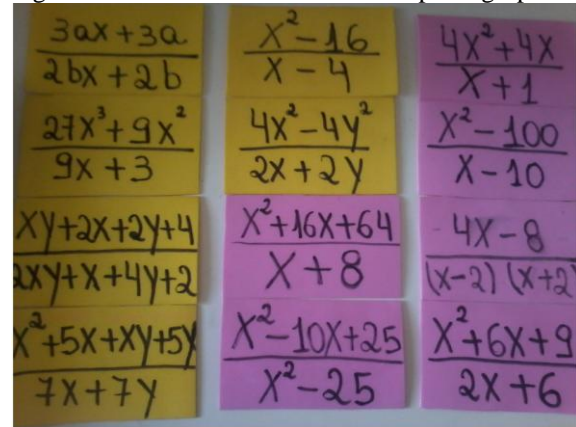 3ax+3a
2bx+2b
27x³+9x²
9x+3
xy+2x+2y+4
2xy+x+4y+2
x²+5x+xy+5y
7x+7y
x²-16
x-4
4x²-4y²
2x+2y
x²+16x+64
x+8
x²-10x+25
x²-25
4x²+4x
x+1
x²-100
x-10
4x-8
(x-2) (x+2)
x²+6x+9
2x+6